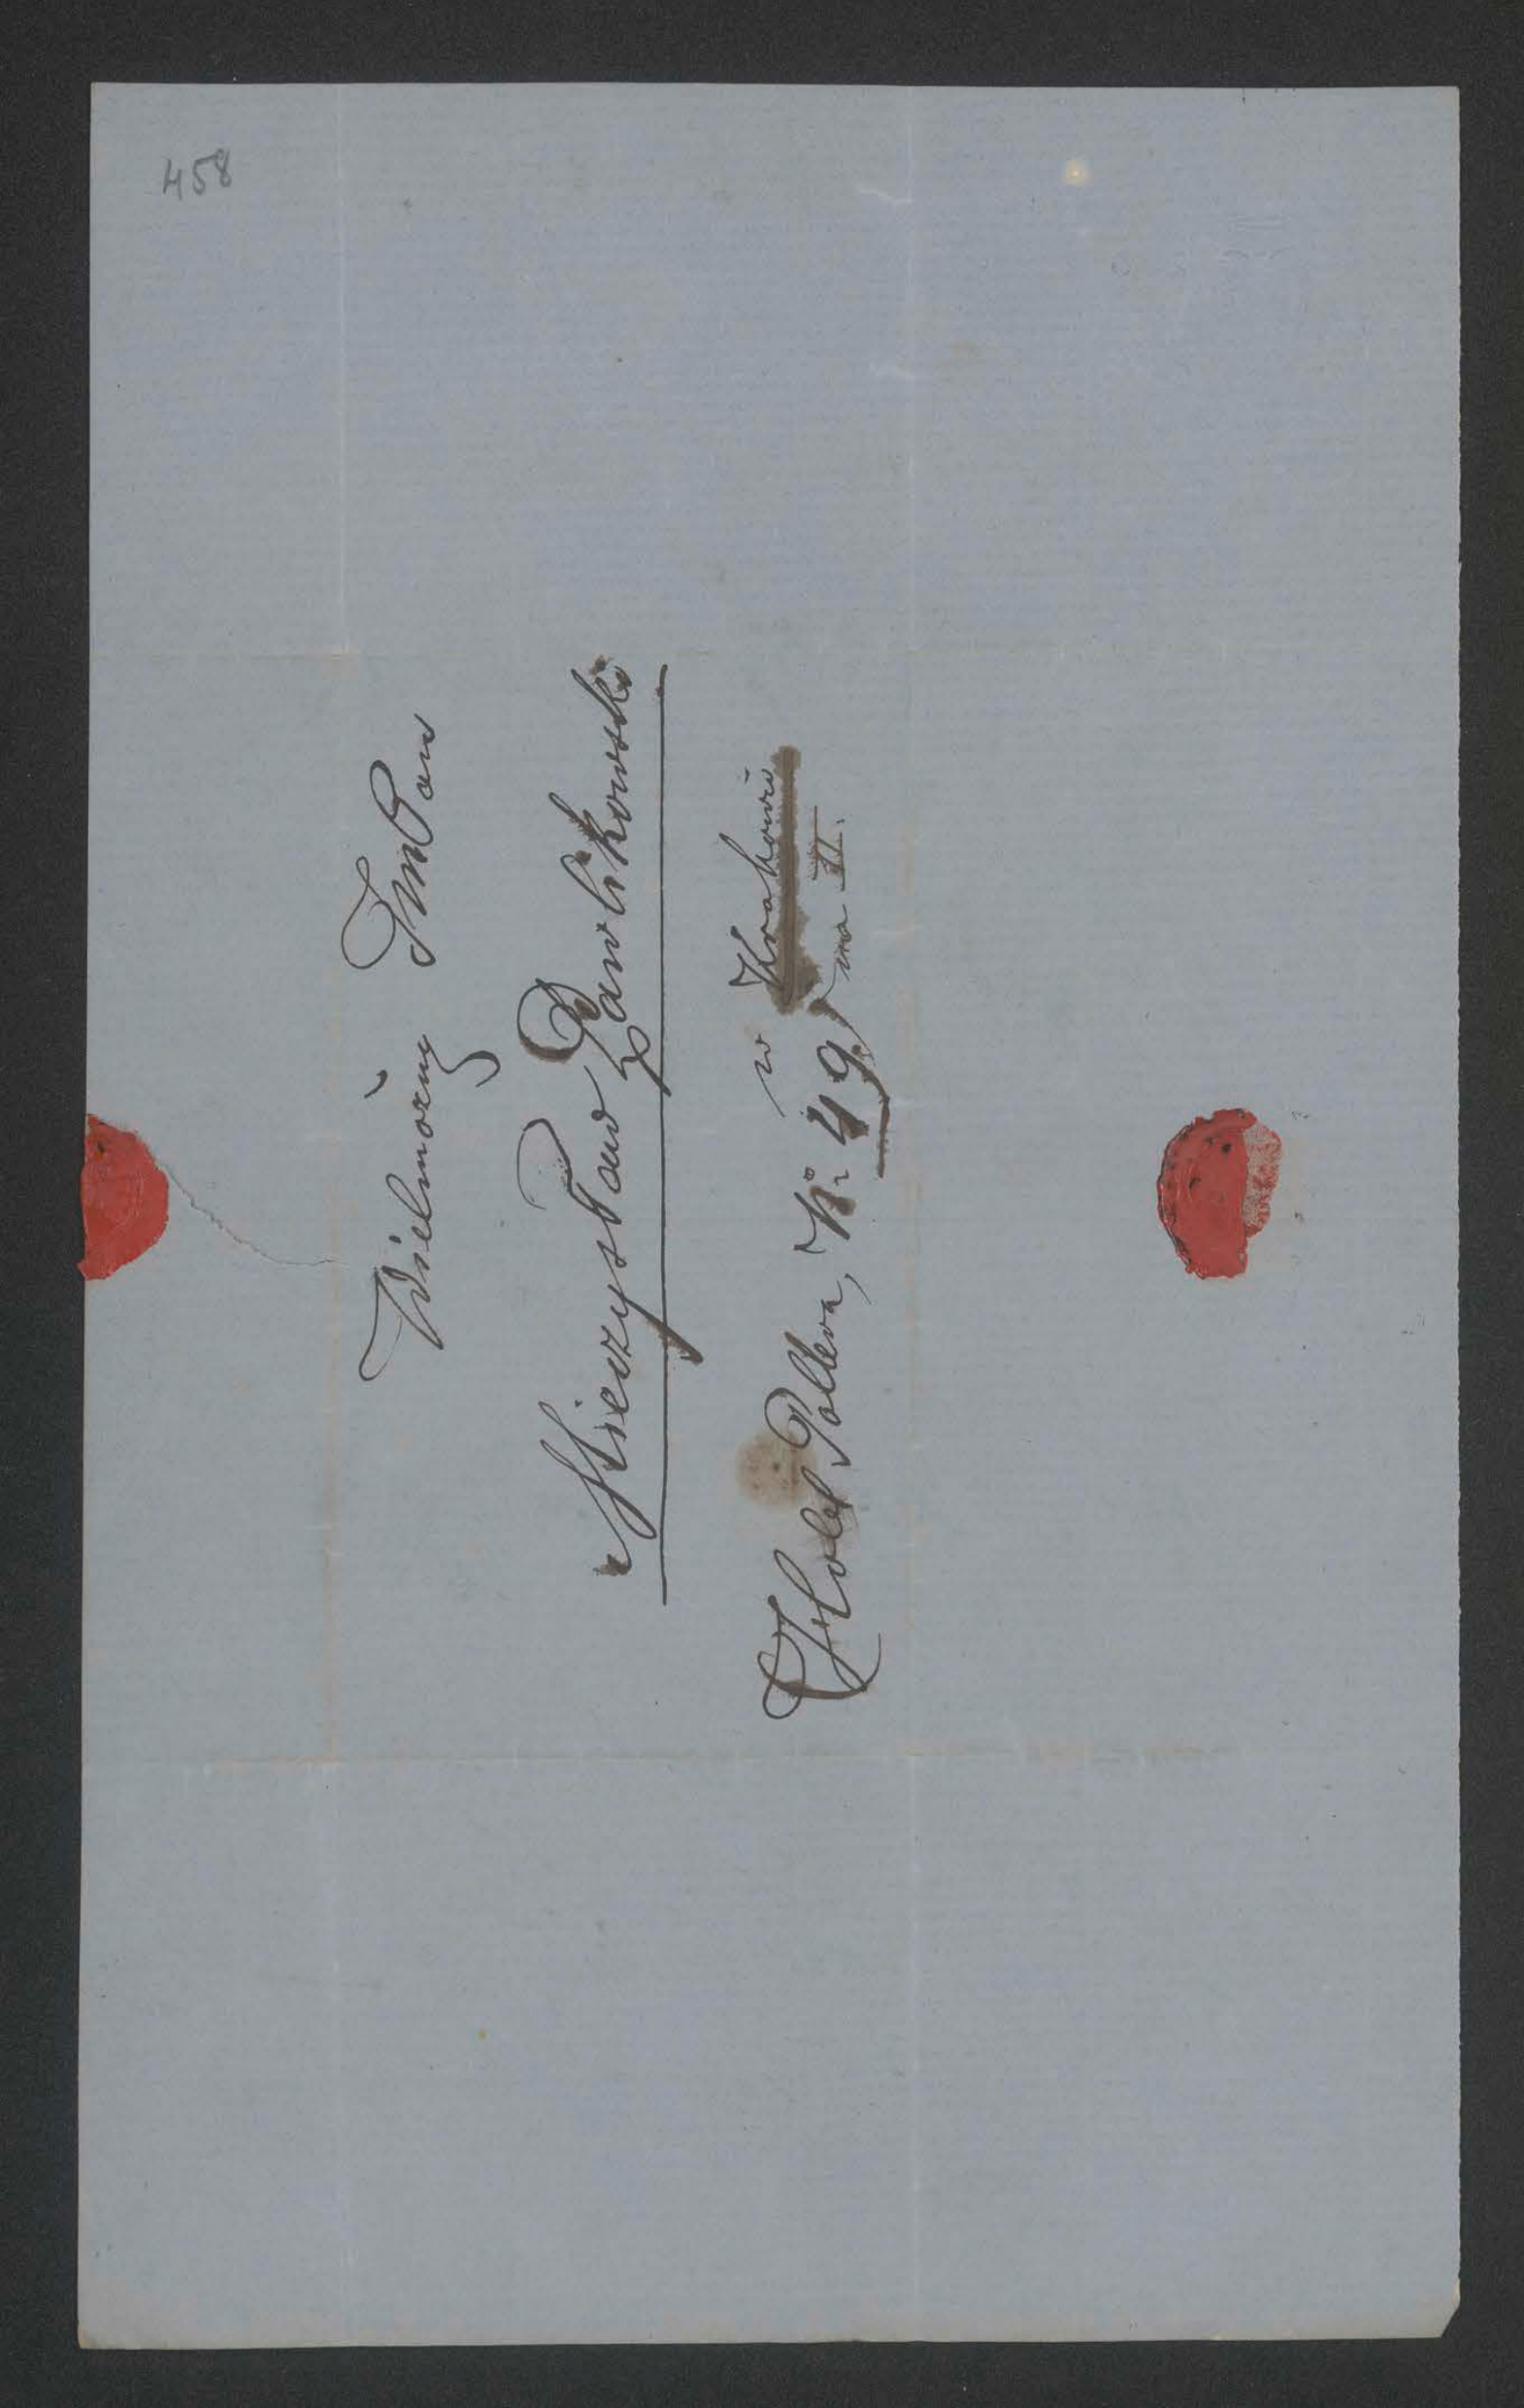 458
Wielmożny JmPan
Mieczysław Pawlikowski
w Krakowie
Hotel Pollera, No 49, na II.